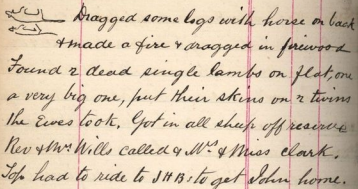 Dragged some logs with horse on back
& made a fire & dragged in firewood
Found 2 dead single lambs on flat, one
a very big one, put their skins on 2 twins
the Ewes took. Got in all sheep off reserve
Rev & Mrs Wills called & Mrs & Miss Clark.
had to ride to J H B: to get John home.